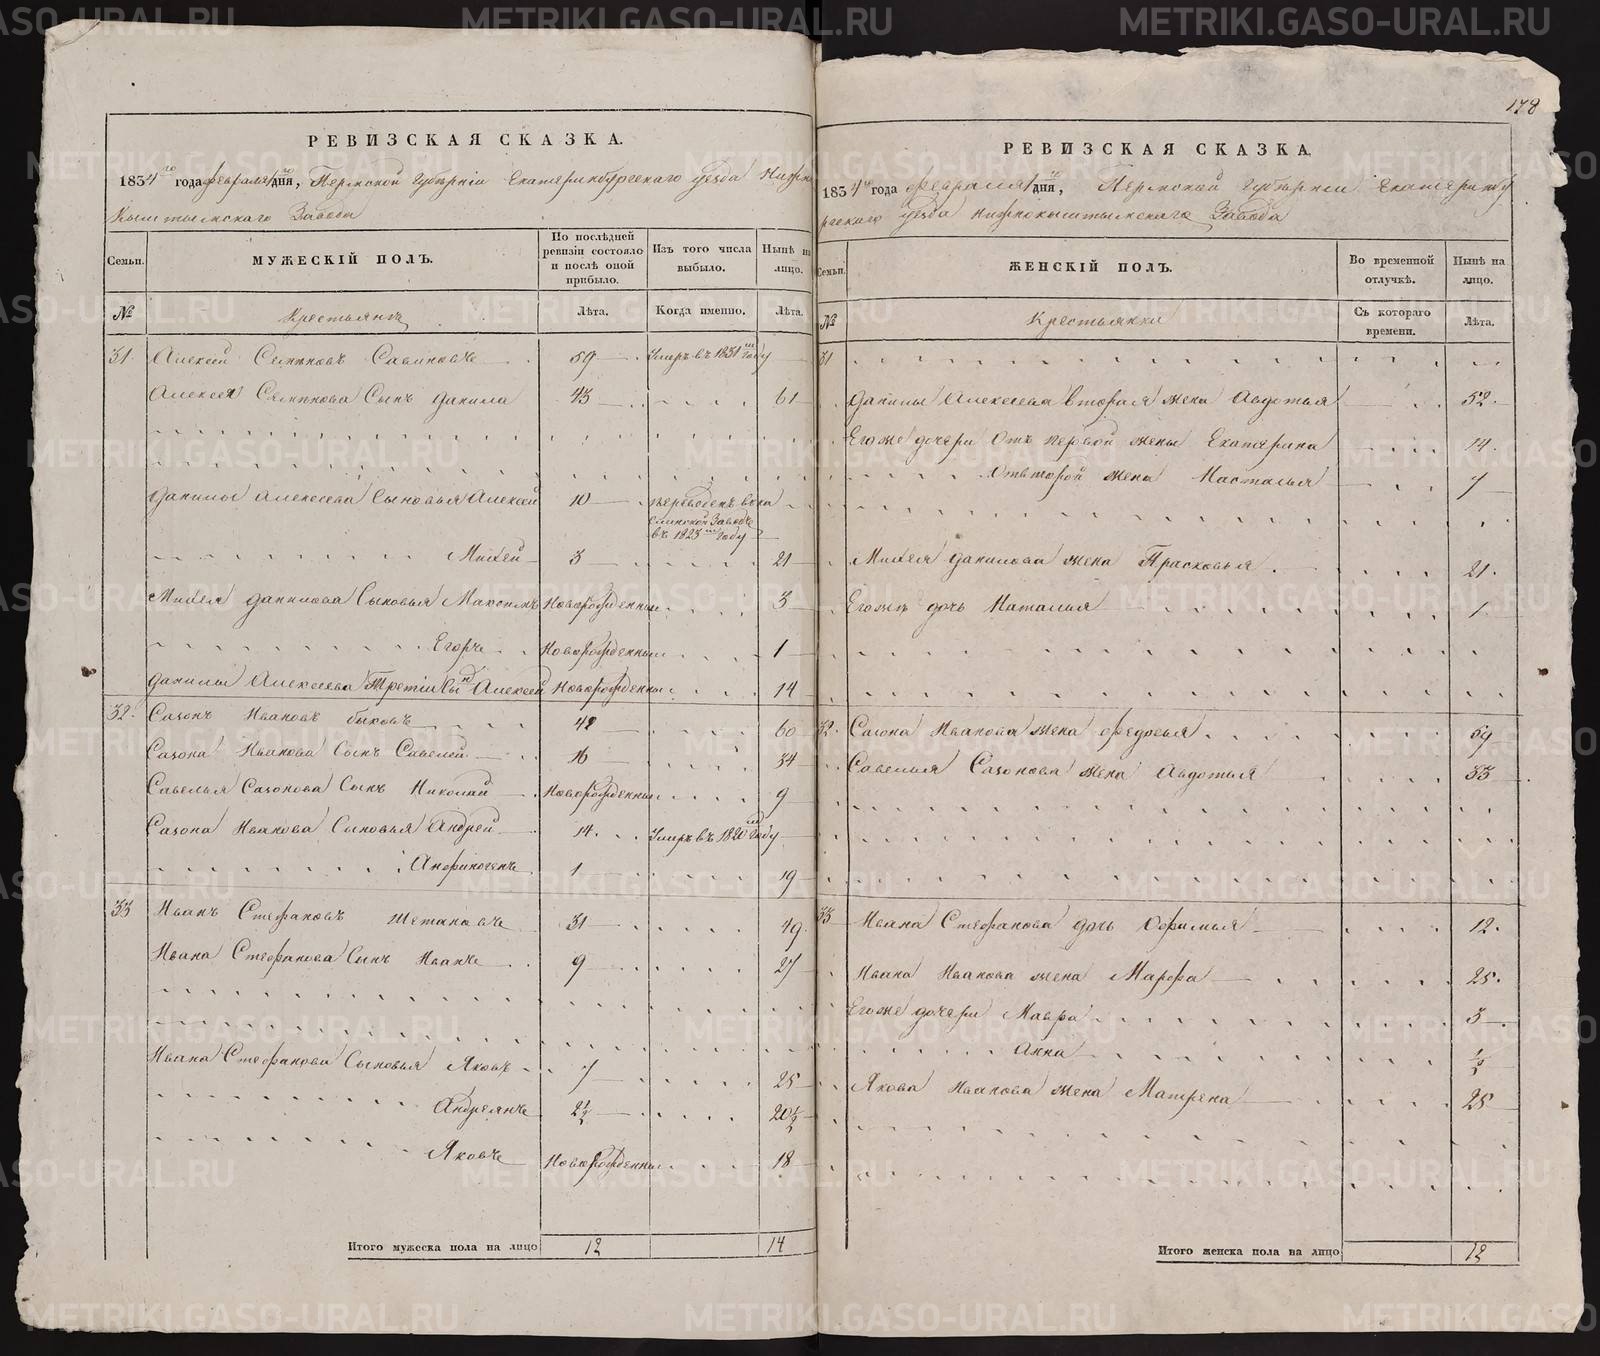 178
РЕВИЗСКАЯ СКАЗКА.
1834 го года февраля дня, Пермской Губерніи Екатеринбургскаго уезда Нижне
Кыштымскаго Завода
Семьи. МУЖЕСКІЙ ПОЛЪ. По послѣдней ревизіи состояло и послѣ оной прибыло. Изъ того числа выбыло. Нынѣ на лицо.
№ Крестьянъ Лѣта. Когда именно. Лѣта.
31. Алексей Савиновъ 59 Умеръ въ 1831 м году
Алексея Сынъ Данила 43 61
Данилы Алексеева Сыновья Алексей 10 переведенъ в
Заводъ
въ 1823 м году
Михей 3 21
Михея Данилова Сыновья Максимъ Новорожденны 3
Егоръ Новорожденны 1
Данилы Алексеева Третій Сынъ Алексей Новорожденны 14
32. Сазонъ Ивановъ Быковъ 42 60
Сазона Иванова Сынъ Савелей 16 34
Савелья Сазонова Сынъ Николай Новорожденны 9
Сазона Иванова Сыновья Андрей 14. Умеръ въ 1820 м году
Анфиногенъ 1 19
33 Иванъ Стефановъ Щетановъ 31 49
Ивана Стефанова Сынъ Иванъ 9 27
Ивана Стефанова Сыновья Яковъ 7 25
Андреянъ 2½ 20½
Яковъ Новорожденны 18
Итого мужеска пола на лицо 12 14
РЕВИЗСКАЯ СКАЗКА.
1834 го года февраля дня, Пермской Губерніи Екатеринбу
ргскаго уезда Нижнокыштымскаго Завода
Семьи. ЖЕНСКІЙ ПОЛЪ. Во временной отлучкѣ. Нынѣ на лицо.
№ Крестьянки Съ котораго времени. Лѣта.
31
Данилы Алексеева вторая жена Авдотья 52.
Егоже дочери Отъ первой жены Екатерина 14.
Отвторой жена Насталья 7
Михея Данилова жена Прасковья. 21.
Егожъ дочь Наталья 1.
32. Сазона Иванова жена Федосья 59
Савелья Сазонова жена Авдотья 33
33 Ивана Стефанова дочь Офимья 12.
Ивана Иванова жена Марфа 25.
Егоже дочери Мавра 3
Анна ½
Якова Иванова жена Матрена 25
Итого женска пола на лицо 12
METRIKI.GASO-URAL.RU